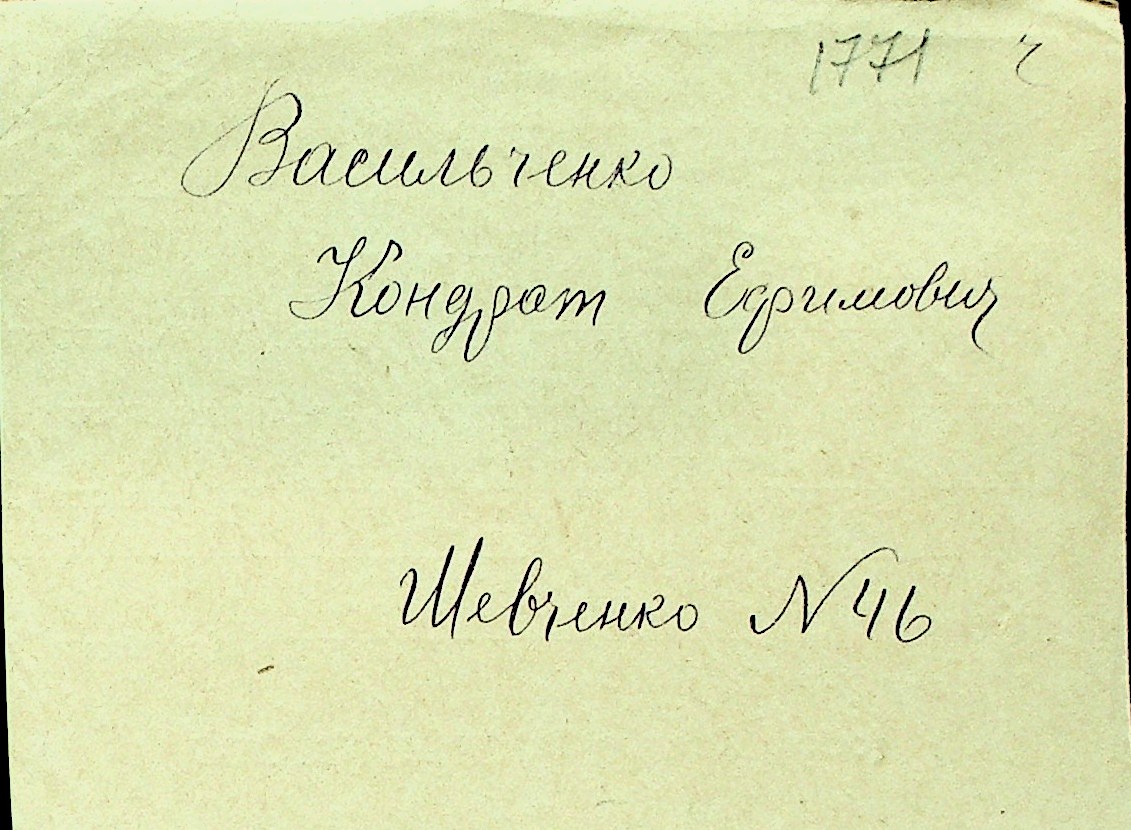 1771 ч
Васильченко
Кондрат Ефимович
Шевченко N 46